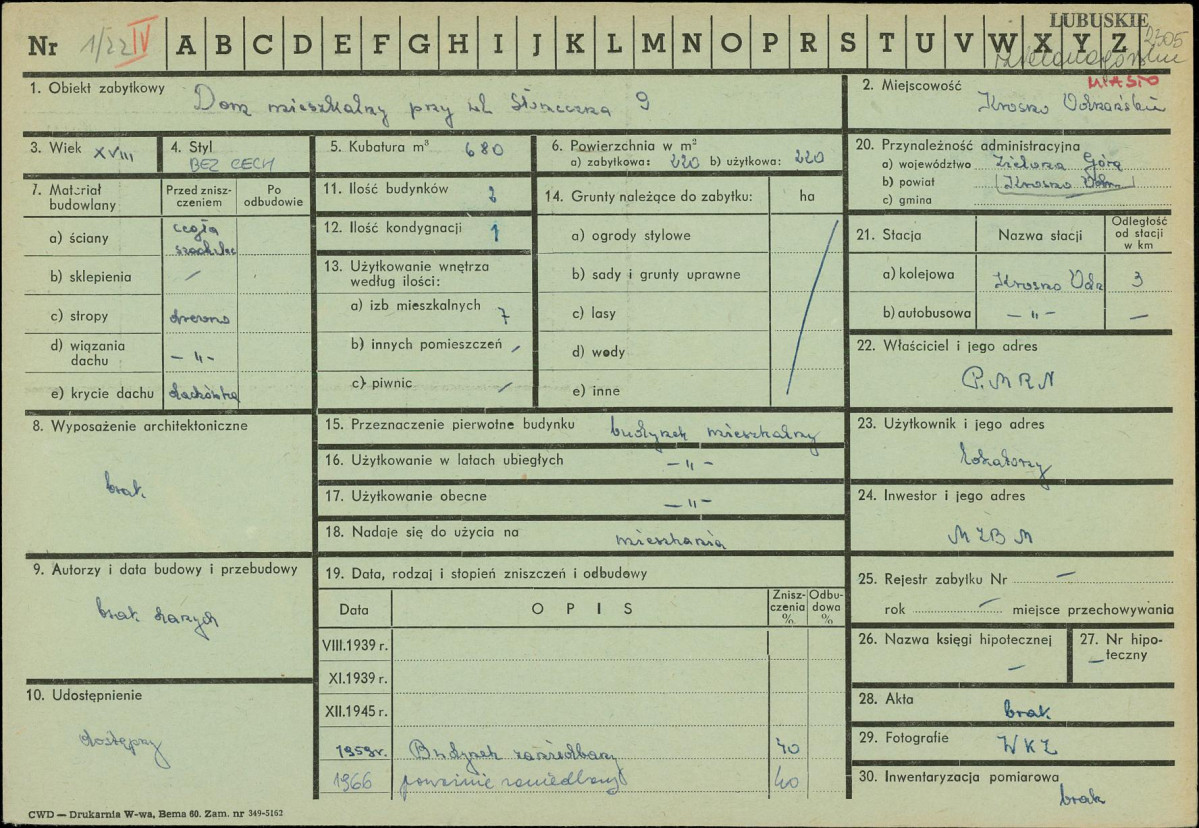 LUBUSKIE
Nr 1/22 IV A B C D E F G H I J K L M N O P R S T U V W X Y Z 2305
MIASTO
1. Obiekt zabytkowy Dom mieszkalny przy ul. 9
2. Miejscowość Krosno Odrzańskie
3. Wiek XVIII
4. Styl BEZ CECH
5. Kubatura m³ 680
6. Powierzchnia w m²
a) zabytkowa: 220 b) użytkowa: 220
20. Przynależność administracyjna
a) województwo Zielona Góra
b) powiat Krosno Odrz.
c) gmina
7. Materiał budowlany
Przed zniszczeniem
Po odbudowie
a) ściany cegła
b) sklepienia /
c) stropy drewno
d) wiązania dachu — " —
e) krycie dachu dachówka
11. Ilość budynków 2
12. Ilość kondygnacji 1
13. Użytkowanie wnętrza według ilości:
a) izb mieszkalnych 7
b) innych pomieszczeń /
c) piwnic /
14. Grunty należące do zabytku: ha
a) ogrody stylowe
b) sady i grunty uprawne
c) lasy
d) wody
e) inne
21. Stacja
Nazwa stacji
Odległość od stacji w km
a) kolejowa Krosno Odr 3
b) autobusowa — " — —
22. Właściciel i jego adres
P.M.R.N
8. Wyposażenie architektoniczne
brak
15. Przeznaczenie pierwotne budynku budynek mieszkalny
16. Użytkowanie w latach ubiegłych — " —
17. Użytkowanie obecne — " —
18. Nadaje się do użycia na mieszkania
23. Użytkownik i jego adres
lokatorzy
24. Inwestor i jego adres
MZBM
9. Autorzy i data budowy i przebudowy
brak danych
19. Data, rodzaj i stopień zniszczeń i odbudowy
Data
OPIS
Zniszczenia %
Odbudowa %
VIII.1939 r.
XI.1939 r.
XII.1945 r.
1959 r. Budynek zaniedbany 40
1966 poważnie zaniedbany 40
25. Rejestr zabytku Nr —
rok — miejsce przechowywania
26. Nazwa księgi hipotecznej —
27. Nr hipoteczny —
10. Udostępnienie
dostępny
28. Akta brak
29. Fotografie WKZ
30. Inwentaryzacja pomiarowa
brak
CWD — Drukarnia W-wa, Bema 60. Zam. nr 349-5162